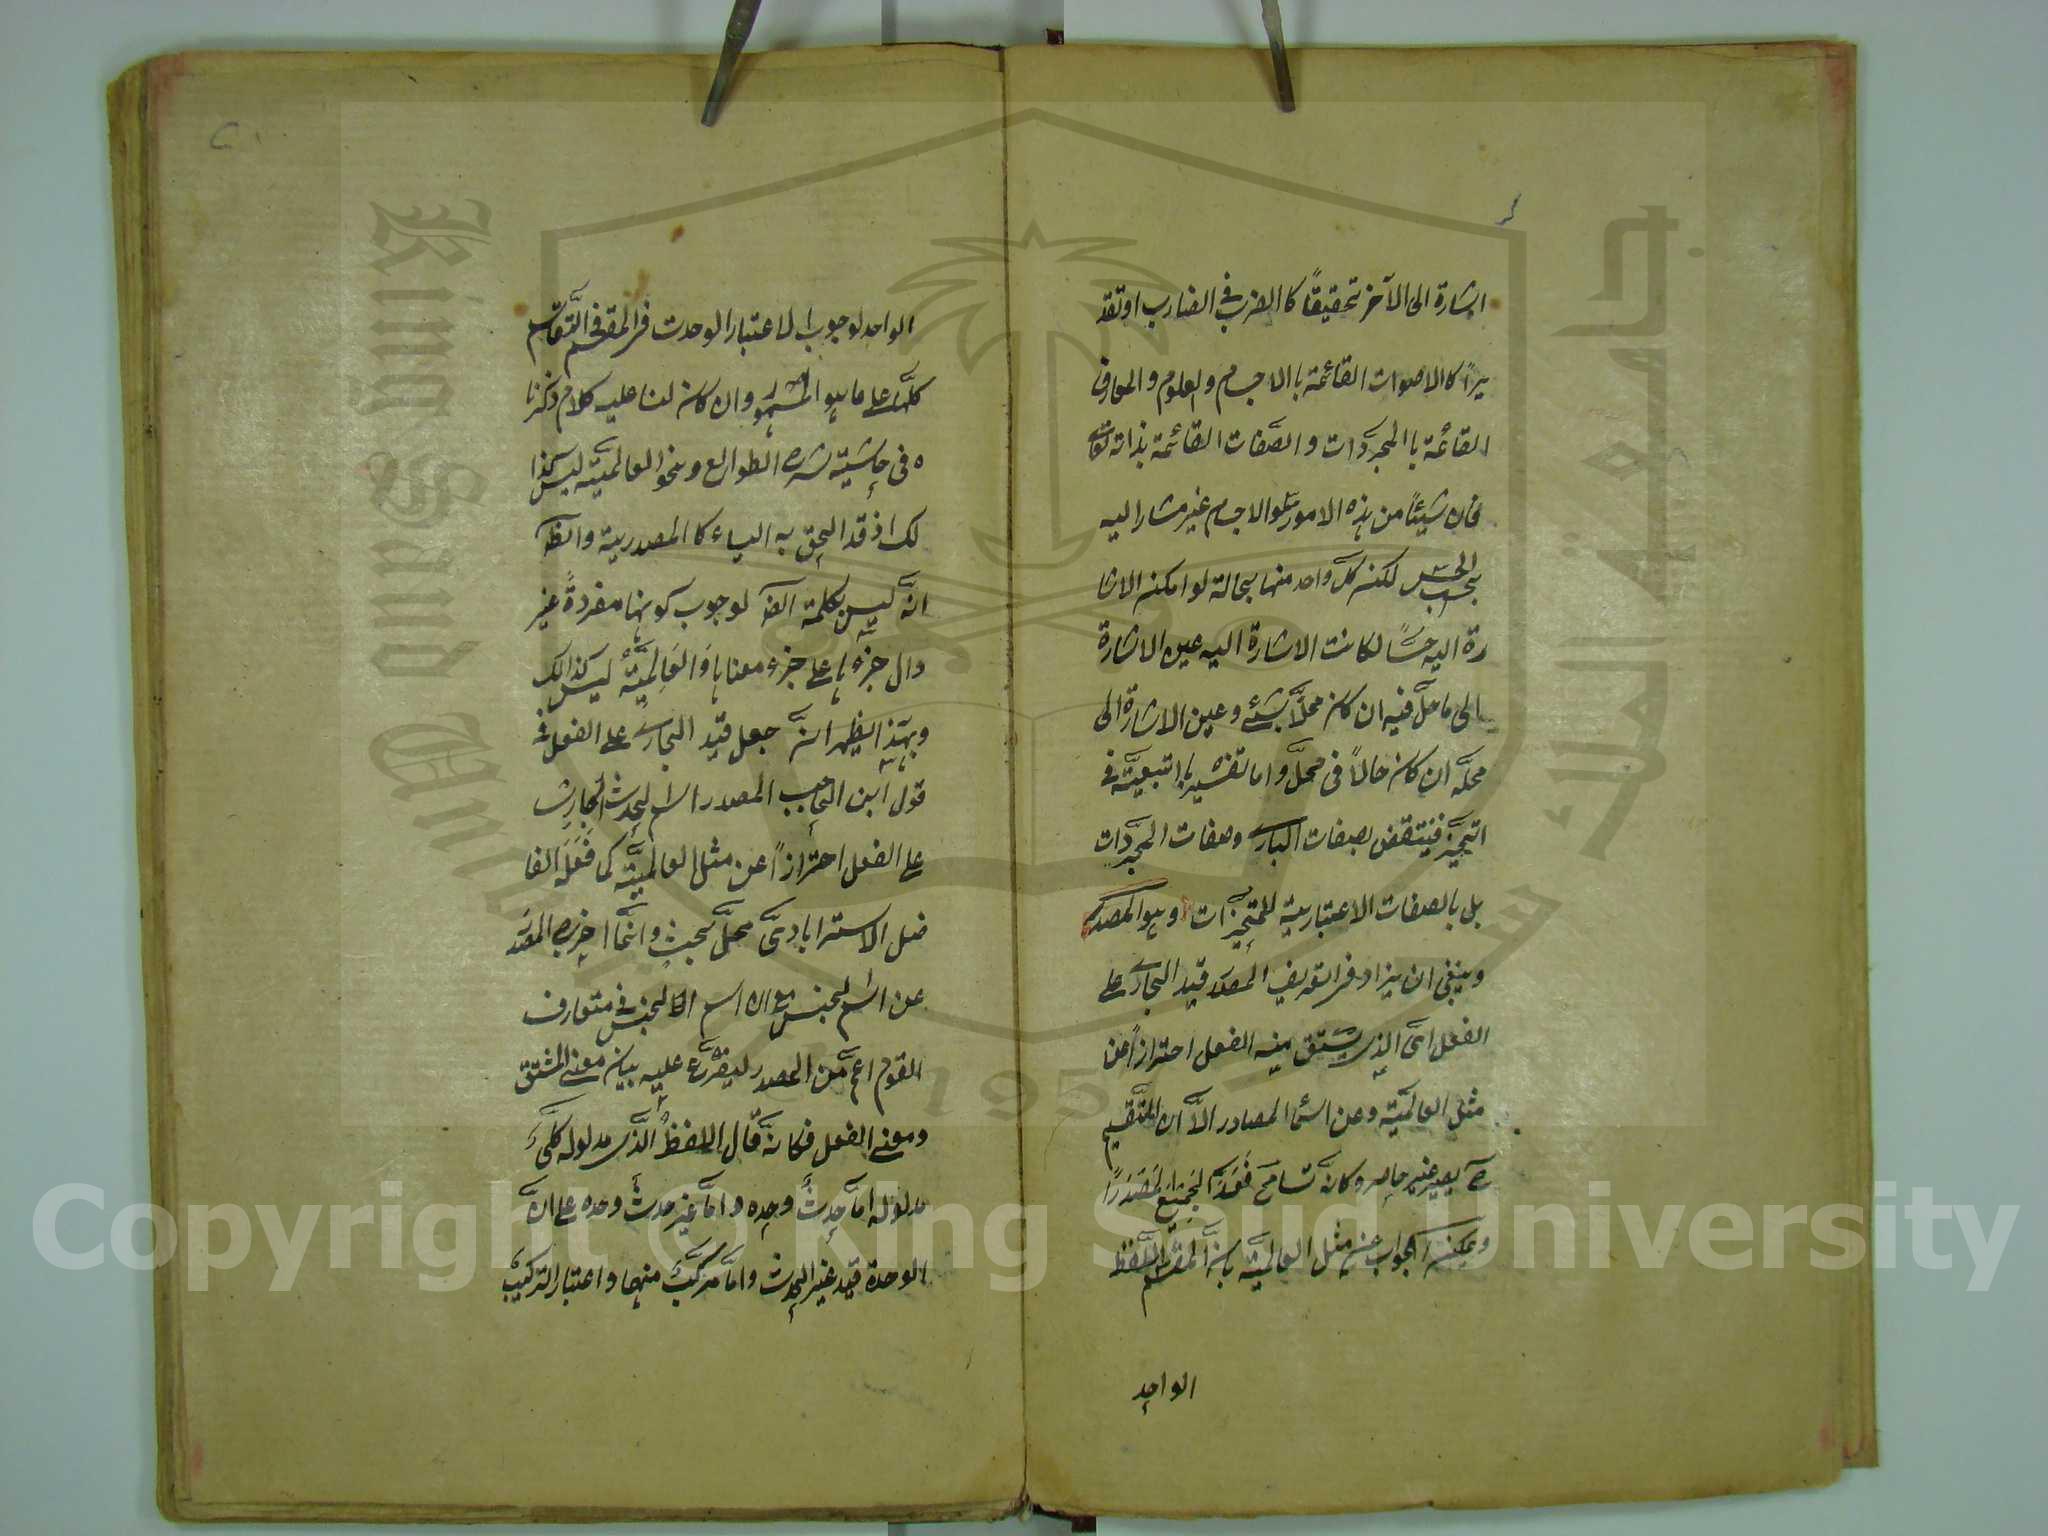 اشارة الى الآخر تحقيقًا كالضرب في الضارب او تقد
يرًا كالاصوات القائمة بالاجسام والعلوم والمعارف
القائمة باالمجرّدات والصّفات القائمة بذاته تعالى
فان شيئًا من هذه الامور تتلو الاجسام غير مشار اليه
بحسب الحسّ لكن كلّ واحد منها بحالة لو امكن الاشا
رة اليه حسًّا لكانت الاشارة اليه عين الاشارة
الى ما حلّ فيه ان كان محلًّا بشئ وعين الاشارة الى
محلّه ان كان حالًا في محلّ واما تفسيرها بالتبعيّة في
التحيّز فينتقض بصفات الباري وصفات المجرّدات
بل بالصفات الاعتبارية للمتحيّزات وهو المصدر
وينبغي ان يزاد في تعريف المصدر قيد الجاري على
الفعل اىّ الذي يشتق منه الفعل احترازًا عن
مثل العالميّة وعن اسماء المصادر الّا ان التّقسيم
ح يصير غير حاصر وكانّه تسامح فعدّ الجميع مصدرًا
ويمكن الجواب عن مثل العالميّة بانّ المقسم اللّفظ
الواحد
الواحد لوجوب اعتبار الوحدت في المقسم في التّقاسيم
كلّها على ما هو المشهور وان كان لنا عليه كلام ذكرنا
ه في حاشية شرح الطوالع ونحو العالميّة ليس كذا
لك اذ قد الحق به الياء كاالمصدرية والظّ
انّه ليس بكلمة ايضًا لوجوب كونها مفردةً غير
دال جزءها على جزء معناها والعالميّة ليس كذالك
وبهذا يظهر انّ جعل قيد الجاري على الفعل في
قول ابن الحاجب المصدر اسم الحدث الجاري
على الفعل احترازًا عن مثل العالميّة كما فعله الفا
ضل الاستراباديّ محلّ بحث وانّما اخرج المصدر
عن اسم الجنس مع ان اسم الجنس في متعارف
القوم اعمّ من المصدر ليفرّع عليه بيان معنى المشتق
ومعنى الفعل فكانّه قال اللفظ الّذى مدلوله كلّىّ
مدلوله امّا حدثٌ وحده وامّا غير حدث وحده على انّ
الوحدة قيد غير الحدث وامّا مركّب منهما واعتبار التركيب
King Saud University
جامعة الملك سعود
1957
Copyright © King Saud University